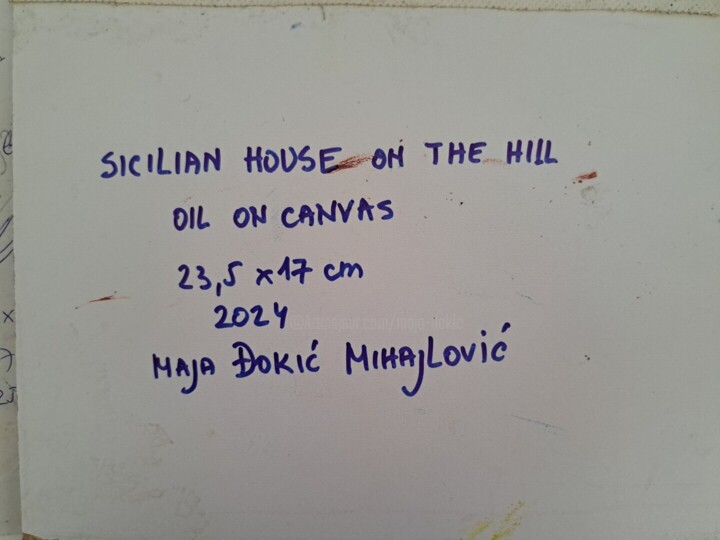 SICILIAN HOUSE ON THE HILL
OIL ON CANVAS
23,5 x 17 cm
2024
MAJA ĐOKIĆ MIHAJLOVIĆ